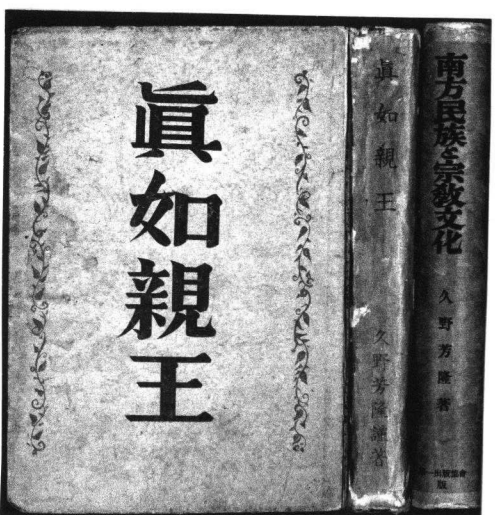 眞如親王
眞如親王
久野芳隆謹著
南方民族と宗教文化
久野芳隆著
第一出版協會
版